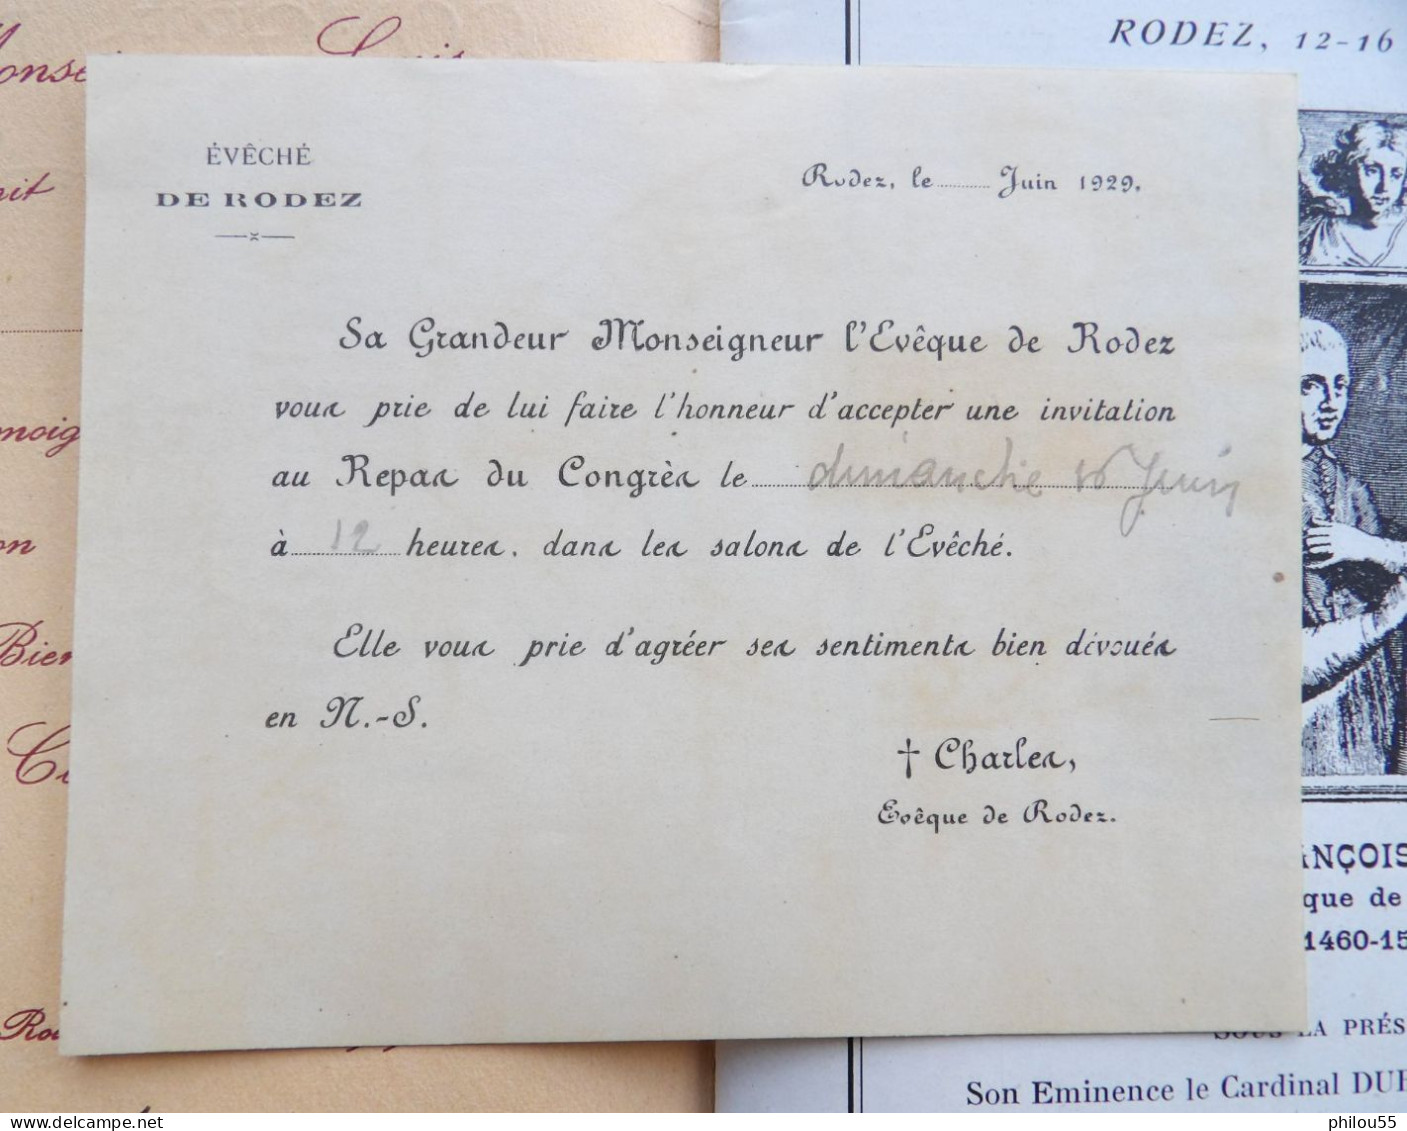 RODEZ, 12-16
ÉVÊCHÉ
DE RODEZ
Rodez, le Juin 1929.
Sa Grandeur Monseigneur l'Evêque de Rodez
vous prie de lui faire l'honneur d'accepter une invitation
au Repas du Congrès le dimanche 16 Juin
à 12 heures, dans les salons de l'Evêché.
Elle vous prie d'agréer ses sentiments bien dévoués
en N.-S.
† Charles,
Evêque de Rodez.
NÇOIS
que de
1460-15
SOUS LA PRÉS
Son Eminence le Cardinal DU
philou55